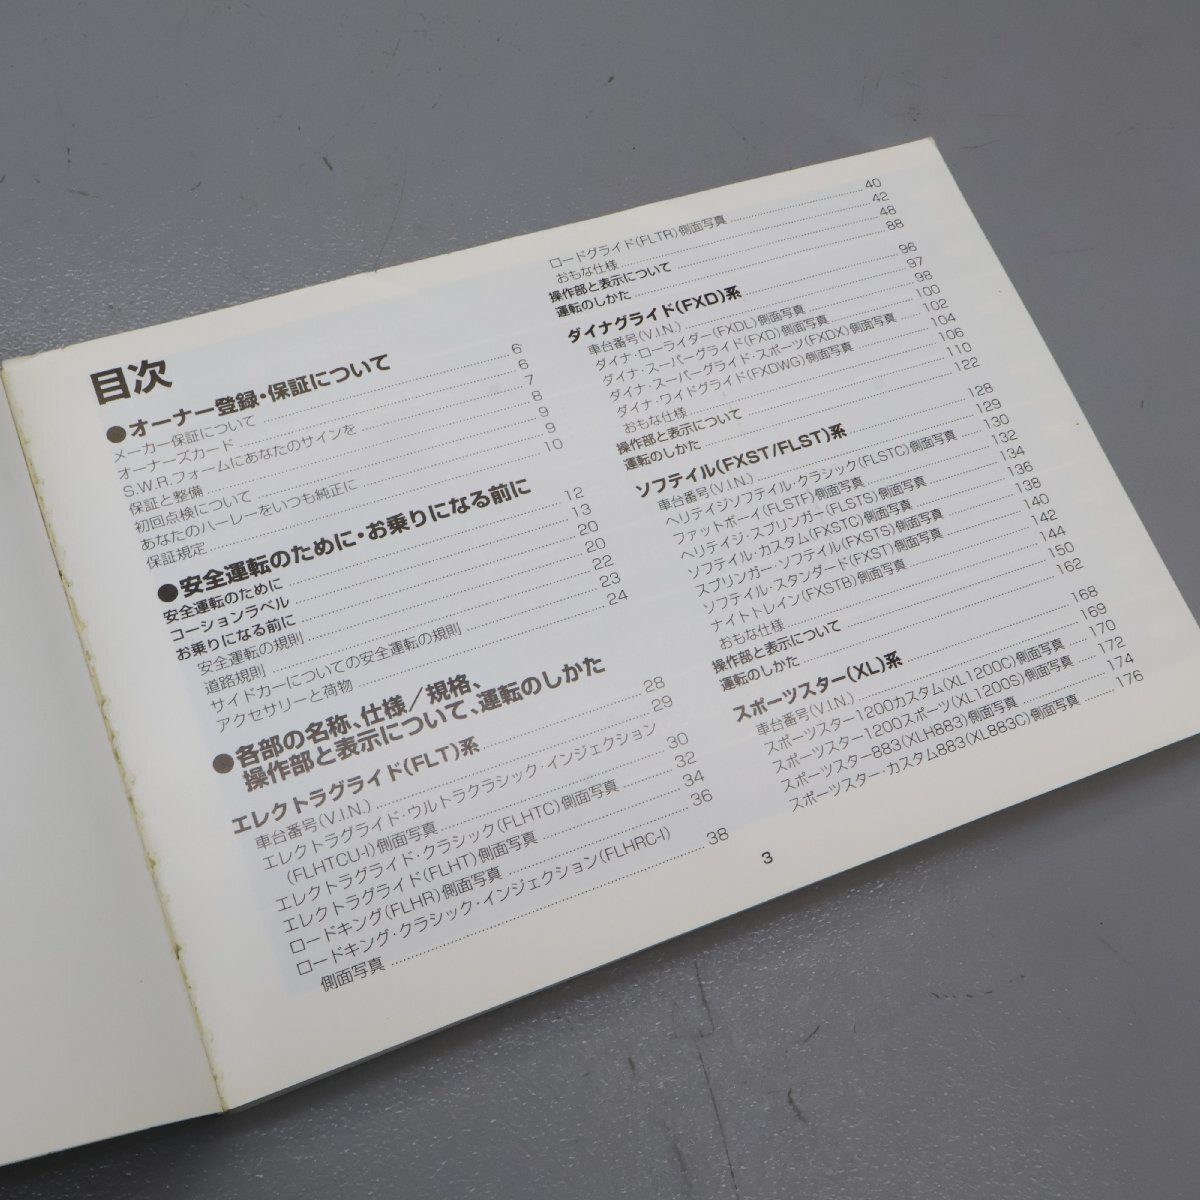 目次
●オーナー登録・保証について
メーカー保証について 6
オーナーズカード 6
S.W.R.フォームにあなたのサインを 7
保証と整備 8
初回点検について 9
あなたのハーレーをいつも純正に 9
保証規定 10
●安全運転のために・お乗りになる前に
安全運転のために 12
コーションラベル 13
お乗りになる前に 20
安全運転の規則 20
道路規則 22
サイドカーについての安全運転の規則 23
アクセサリーと荷物 24
●各部の名称、仕様／規格、
操作部と表示について、運転のしかた
エレクトラグライド(FLT)系
車台番号(V.I.N.) 28
エレクトラグライド・ウルトラクラシック・インジェクション
(FLHTCU-I)側面写真 29
エレクトラグライド・クラシック(FLHTC)側面写真 30
エレクトラグライド(FLHT)側面写真 32
ロードキング(FLHR)側面写真 34
ロードキング・クラシック・インジェクション(FLHRC-I) 36
側面写真 38
ロードグライド(FLTR)側面写真 40
おもな仕様 42
操作部と表示について 48
運転のしかた 88
ダイナグライド(FXD)系
車台番号(V.I.N.) 96
ダイナ・ローライダー(FXDL)側面写真 97
ダイナ・スーパーグライド(FXD)側面写真 98
ダイナ・スーパーグライド・スポーツ(FXDX)側面写真 100
ダイナ・ワイドグライド(FXDWG)側面写真 102
おもな仕様 104
操作部と表示について 106
運転のしかた 110
122
ソフテイル(FXST/FLST)系
車台番号(V.I.N.) 128
ヘリテイジソフテイル・クラシック(FLSTC)側面写真 129
ファットボーイ(FLSTF)側面写真 130
ヘリテイジ・スプリンガー(FLSTS)側面写真 132
ソフテイル・カスタム(FXSTC)側面写真 134
スプリンガー・ソフテイル(FXSTS)側面写真 136
ソフテイル・スタンダード(FXST)側面写真 138
ナイトトレイン(FXSTB)側面写真 140
おもな仕様 142
操作部と表示について 144
運転のしかた 150
162
スポーツスター(XL)系
車台番号(V.I.N.) 168
スポーツスター1200カスタム(XL1200C)側面写真 169
スポーツスター1200スポーツ(XL1200S)側面写真 170
スポーツスター883(XLH883)側面写真 172
スポーツスター・カスタム883(XL883C)側面写真 174
176
3